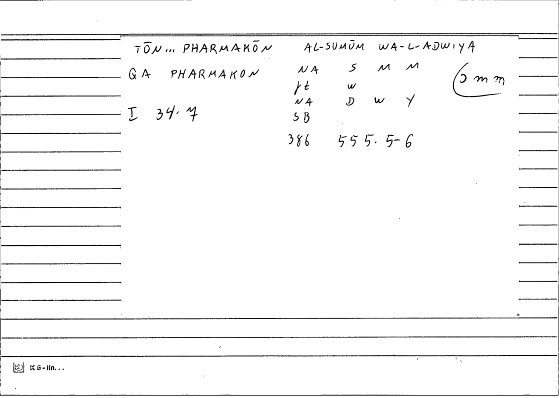 TŌN... PHARMAKŌN AL-SUMŪM WA-L-ADWIYA
QA PHARMAKON NA S M M
jt w
I 34.7 NA D W Y
SB
386 555.5-6
smm